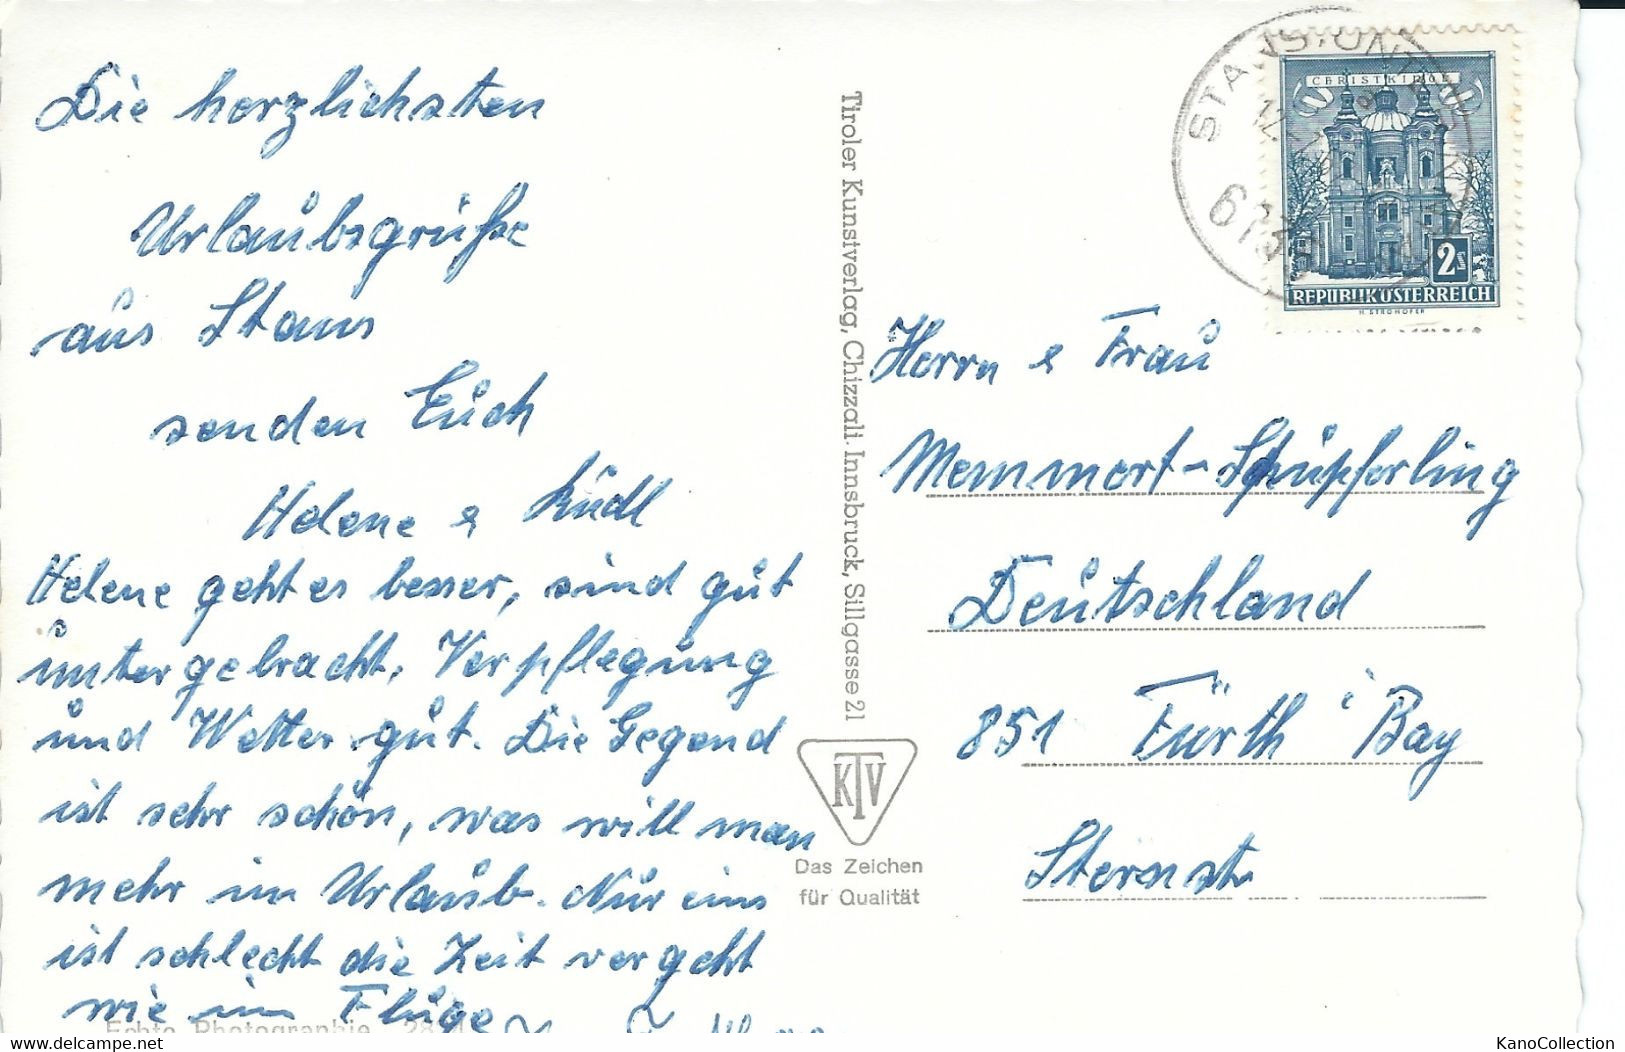 Die herzlichsten
Urlaubsgrüße
aus Stans
senden Euch
Helene &
Helene geht es besser, sind gut
untergebracht, Verpflegung
und Wetter gut. Die Gegend
ist sehr schön, was will man
mehr im Urlaub. Nur eins
ist schlecht die Zeit vergeht
wie im Fluge
Echte Photographie
Tiroler Kunstverlag, Chizzali. Innsbruck, Sillgasse 21
KTV
Das Zeichen
für Qualität
CHRISTKINDL
2s
REPUBLIK ÖSTERREICH
H. STROHOFER
Herrn & Frau
Memmert-Schüpferling
Deutschland
851 Fürth i Bay
Sternstr
KanoCollection